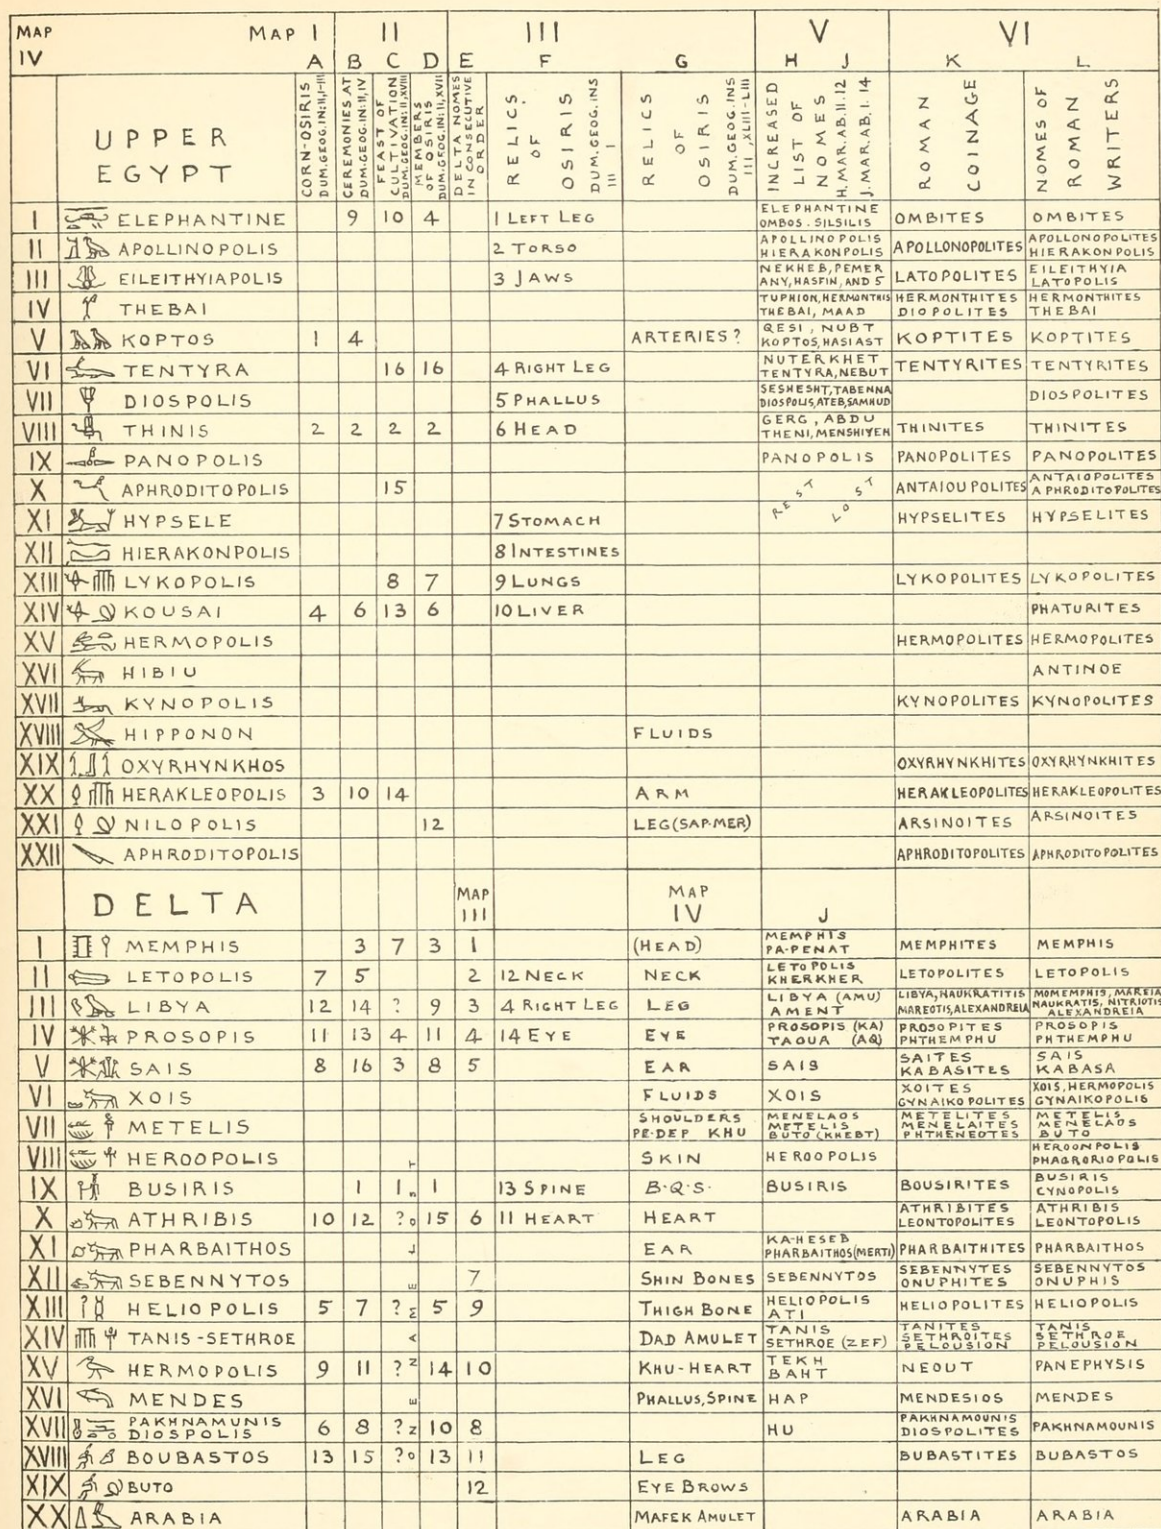 MAP MAP I II III V VI
IV A B C D E F G H J K L
UPPER EGYPT CORN-OSIRIS DUM.GEOG.IN:II,I-III CEREMONIES AT DUM.GEOG.IN:II,IV FEAST OF CULTIVATION DUM.GEOG.IN:II,XVIII MEMBERS OF OSIRIS DUM.GEOG.IN:II,XVII DELTA NOMES IN CONSECUTIVE ORDER RELICS. OF OSIRIS DUM.GEOG.INS III I RELICS OF OSIRIS DUM.GEOG.INS III,XLIII-LIII INCREASED LIST OF NOMES H.MAR.AB.II.12 J.MAR.AB.I.14 ROMAN COINAGE NOMES OF ROMAN WRITERS
I ELEPHANTINE 9 10 4 1 LEFT LEG ELEPHANTINE OMBOS. SILSILIS OMBITES OMBITES
II APOLLINOPOLIS 2 TORSO APOLLINOPOLIS HIERAKONPOLIS APOLLONOPOLITES APOLLONOPOLITES HIERAKONPOLIS
III EILEITHYIAPOLIS 3 JAWS NEKHEB, PEMER ANY, HASFIN, AND 5 LATOPOLITES EILEITHYIA LATOPOLIS
IV THEBAI TUPHION, HERMONTHIS THEBAI, MAAD HERMONTHITES DIOPOLITES HERMONTHITES THEBAI
V KOPTOS 1 4 ARTERIES? QESI, NUBT KOPTOS, HASIAST KOPTITES KOPTITES
VI TENTYRA 16 16 4 RIGHT LEG NUTERKHET TENTYRA, NEBUT TENTYRITES TENTYRITES
VII DIOSPOLIS 5 PHALLUS SESHESHT, TABENNA DIOSPOLIS, ATEB, SAMHUD DIOSPOLITES
VIII THINIS 2 2 2 2 6 HEAD GERG, ABDU THENI, MENSHIYEH THINITES THINITES
IX PANOPOLIS PANOPOLIS PANOPOLITES PANOPOLITES
X APHRODITOPOLIS 15 REST LOST ANTAIOUPOLITES ANTAIOPOLITES APHRODITOPOLITES
XI HYPSELE 7 STOMACH HYPSELITES HYPSELITES
XII HIERAKONPOLIS 8 INTESTINES
XIII LYKOPOLIS 8 7 9 LUNGS LYKOPOLITES LYKOPOLITES
XIV KOUSAI 4 6 13 6 10 LIVER PHATURITES
XV HERMOPOLIS HERMOPOLITES HERMOPOLITES
XVI HIBIU ANTINOE
XVII KYNOPOLIS KYNOPOLITES KYNOPOLITES
XVIII HIPPONON FLUIDS
XIX OXYRHYNKHOS OXYRHYNKHITES OXYRHYNKHITES
XX HERAKLEOPOLIS 3 10 14 ARM HERAKLEOPOLITES HERAKLEOPOLITES
XXI NILOPOLIS 12 LEG (SAP-MER) ARSINOITES ARSINOITES
XXII APHRODITOPOLIS APHRODITOPOLITES APHRODITOPOLITES
DELTA MAP III MAP IV J
I MEMPHIS 3 7 3 1 (HEAD) MEMPHIS PA-PENAT MEMPHITES MEMPHIS
II LETOPOLIS 7 5 2 12 NECK NECK LETOPOLIS KHERKHER LETOPOLITES LETOPOLIS
III LIBYA 12 14 ? 9 3 4 RIGHT LEG LEG LIBYA (AMU) AMENT LIBYA, NAUKRATITIS MAREOTIS, ALEXANDREIA MOMEMPHIS, MAREIA NAUKRATIS, NITRIOTIS ALEXANDREIA
IV PROSOPIS 11 13 4 11 4 14 EYE EYE PROSOPIS (KA) TAOUA (AQ) PROSOPITES PHTHEMPHU PROSOPIS PHTHEMPHU
V SAIS 8 16 3 8 5 EAR SAIS SAITES KABASITES SAIS KABASA
VI XOIS FLUIDS XOIS XOITES GYNAIKOPOLITES XOIS, HERMOPOLIS GYNAIKOPOLIS
VII METELIS SHOULDERS PE-DEP KHU MENELAOS METELIS BUTO (KHEBT) METELITES MENELAITES PHTHENEOTES METELIS MENELAOS BUTO
VIII HEROOPOLIS SKIN HEROOPOLIS HEROONPOLIS PHAGRORIOPOLIS
IX BUSIRIS 1 1 1 13 SPINE B.Q.S. BUSIRIS BOUSIRITES BUSIRIS CYNOPOLIS
X ATHRIBIS 10 12 ? 15 6 11 HEART HEART ATHRIBITES LEONTOPOLITES ATHRIBIS LEONTOPOLIS
XI PHARBAITHOS EAR KA-HESEB PHARBAITHOS (MERTI) PHARBAITHITES PHARBAITHOS
XII SEBENNYTOS 7 SHIN BONES SEBENNYTOS SEBENNYTES ONUPHITES SEBENNYTOS ONUPHIS
XIII HELIOPOLIS 5 7 ? 5 9 THIGH BONE HELIOPOLIS ATI HELIOPOLITES HELIOPOLIS
XIV TANIS-SETHROE DAD AMULET TANIS SETHROE (ZEF) TANITES SETHROITES PELOUSION TANIS SETHROE PELOUSION
XV HERMOPOLIS 9 11 ? 14 10 KHU-HEART TEKH BAHT NEOUT PANEPHYSIS
XVI MENDES PHALLUS, SPINE HAP MENDESIOS MENDES
XVII PAKHNAMUNIS DIOSPOLIS 6 8 ? 10 8 HU PAKHNAMOUNIS DIOSPOLITES PAKHNAMOUNIS
XVIII BOUBASTOS 13 15 ? 13 11 LEG BUBASTITES BUBASTOS
XIX BUTO 12 EYE BROWS
XX ARABIA MAFEK AMULET ARABIA ARABIA
NO NAMES LEFT